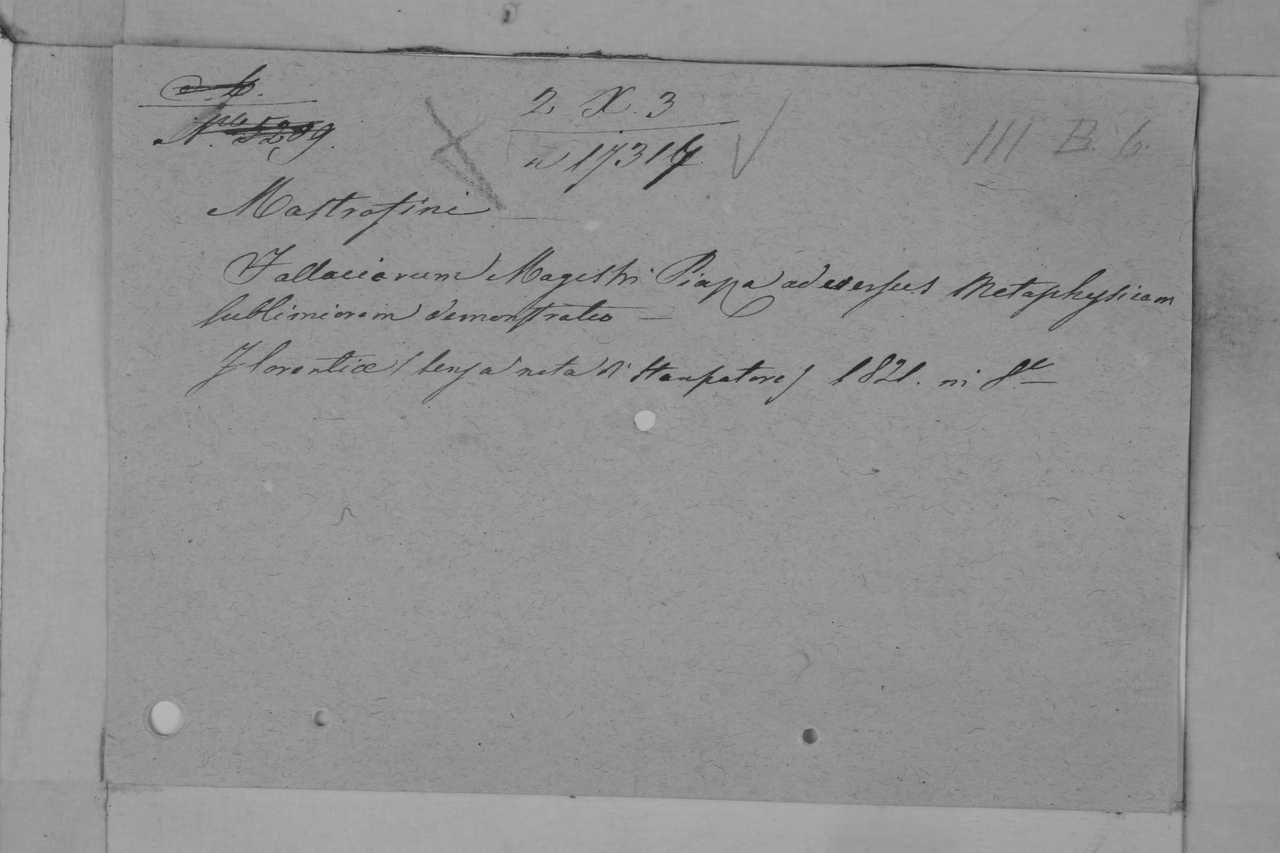 2 X. 3
III B. 6.
N.ro 5209.
n 17317
Mastrofini
Fallaciarum Magistri Piapa adversus Metaphysicam
sublimiorem demonstratio
Florentiæ (senza nota di Stampatore) 1821. in 8.º